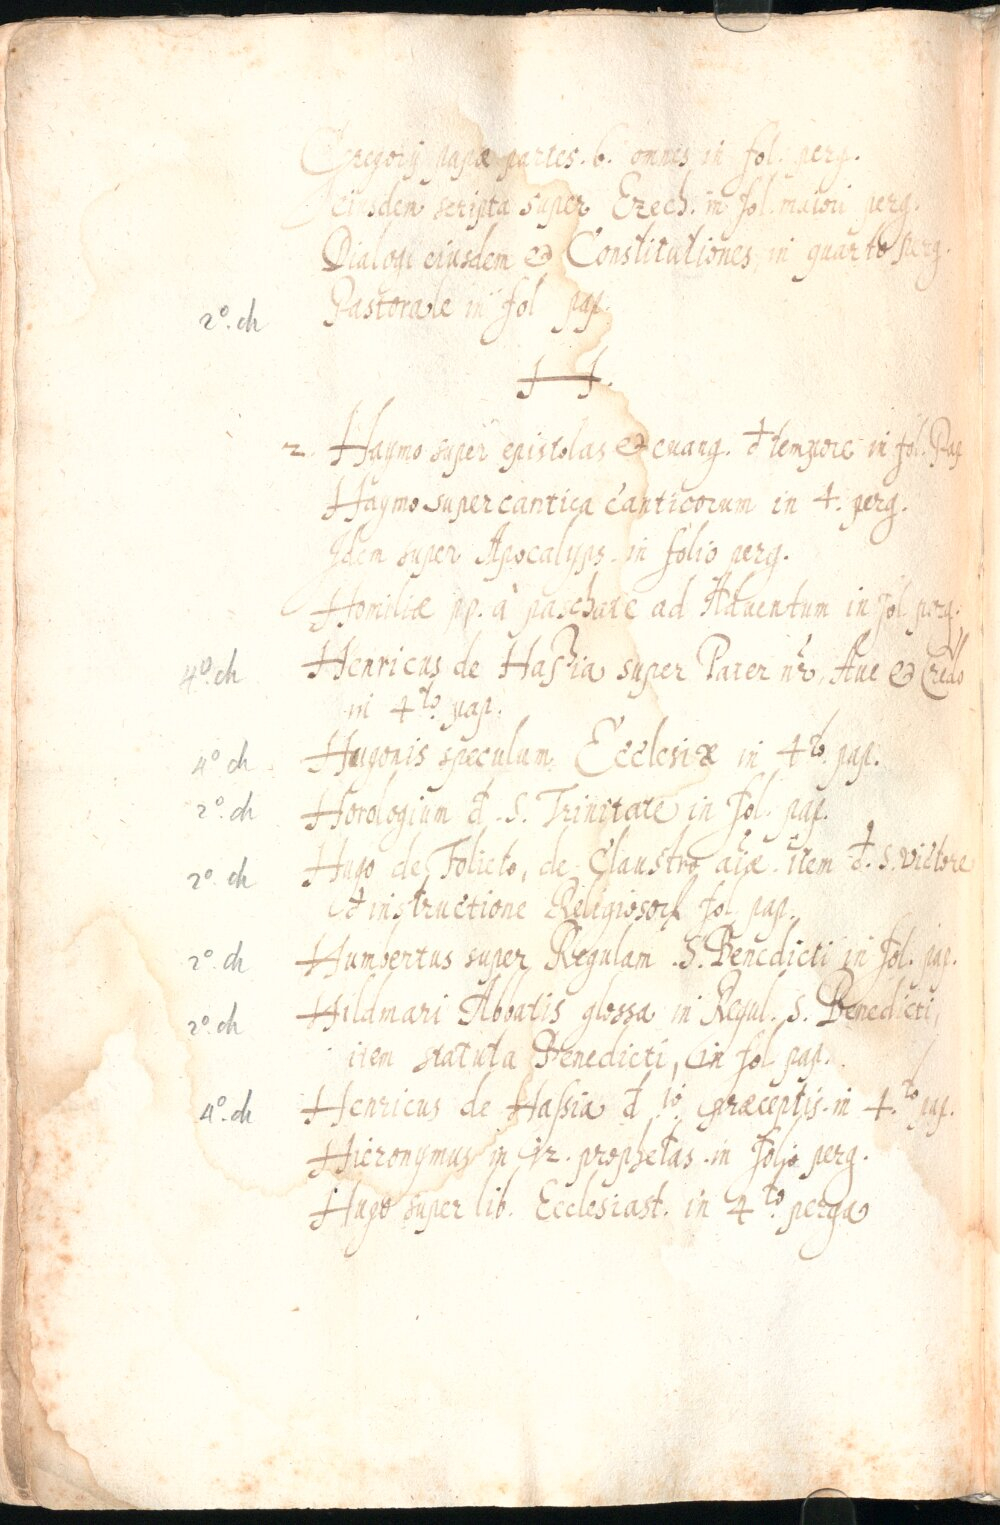 Gregorij papæ partes .6. omnes in fol. perg.
eiusdem scripta super Ezech. in fol. maiori perg.
Dialogi eiusdem et Constitutiones in quarto perg.
2º. ch Pastorale in fol pap.
H.
2. Haymo super epistolas et euang. đ tempore in fol. Pap
Haymo super cantica canticorum in 4. perg.
Idem super Apocalyps. in folio perg.
Homiliæ pp. à paschate ad Aduentum in fol perg.
4º. ch Henricus de Hassia super Pater nr̃, Aue et Credo
in 4to. pap.
4º ch Hugonis speculum Ecclesiæ in 4to. pap.
2º. ch Horologium đ .S. Trinitate in fol. pap.
2º. ch Hugo de Folieto, de Claustro aĩæ. item đ. S. Victore
đ instructione Religiosoꝝ fol pap.
2º. ch Humbertus super Regulam .S. Benedicti in fol. pap.
2º. ch Hildmari Abbatis glossa in Regul. S. Benedicti,
item statuta Benedicti, in fol pap.
4º. ch Henricus de Hassia đ 10 præceptis. in 4.to pap.
Hieronymus in 12. prophetas. in folio perg.
Hugo super lib. Ecclesiast. in 4to. perga